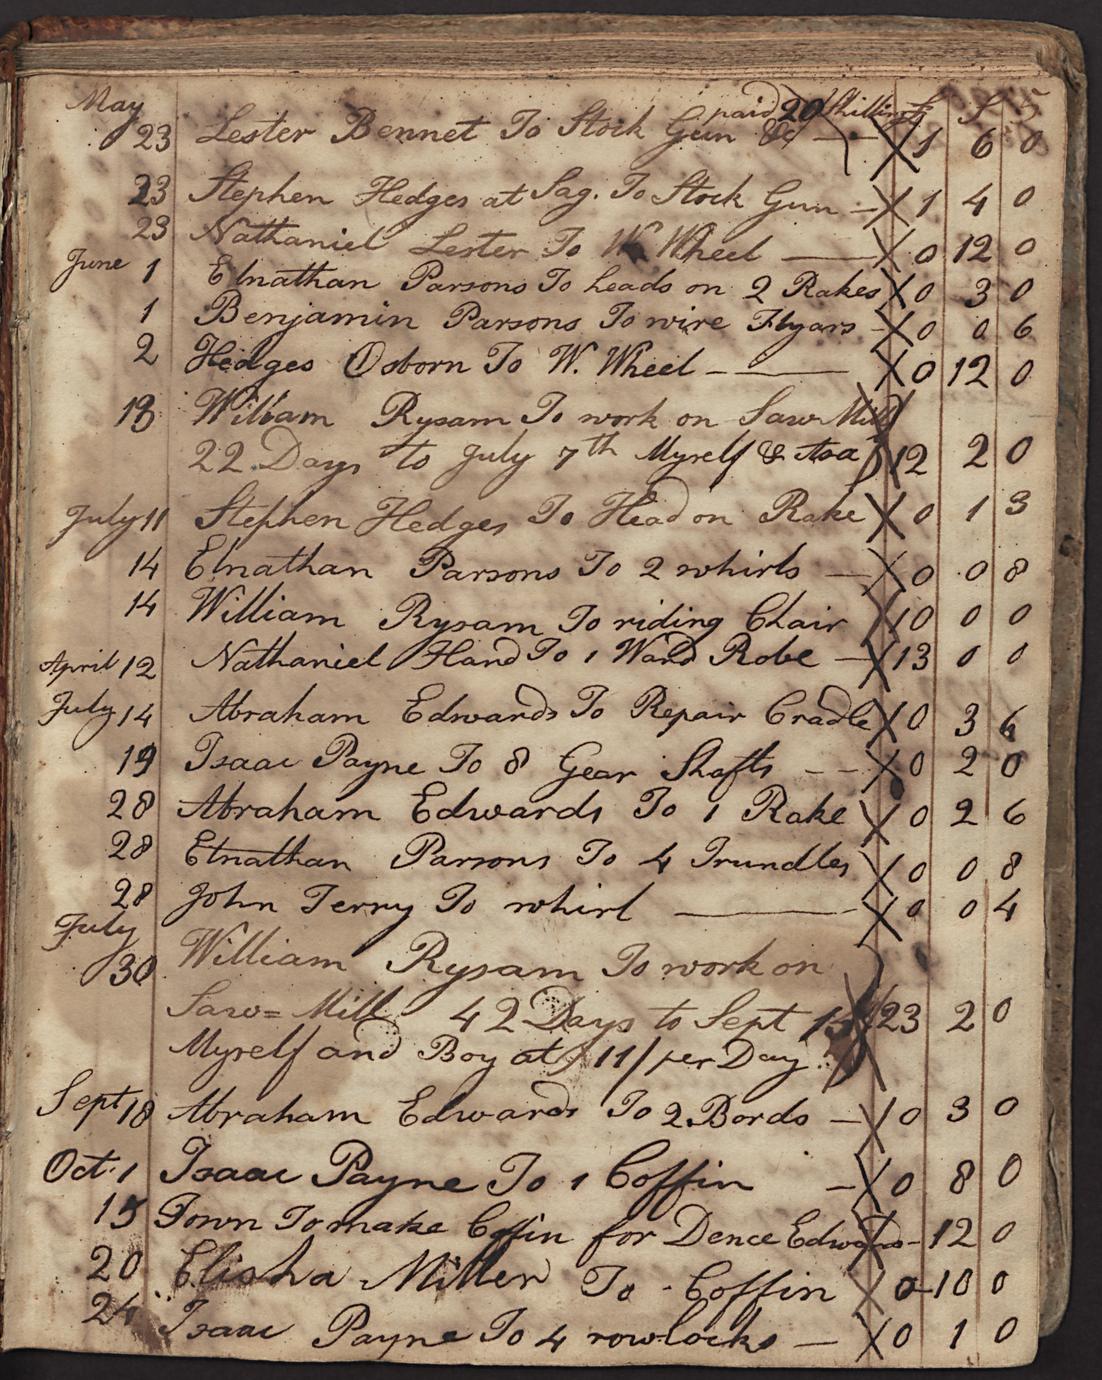 May paid 20 Shillings £ S
23 Lester Bennet To Stock Gun &c — X 1 6 0
23 Stephen Hedges at Sag. To Stock Gun — X 1 4 0
23 Nathaniel Lester To W. Wheel — X 0 12 0
June 1 Elnathan Parsons To heads on 2 Rakes X 0 3 0
1 Benjamin Parsons To wire Flyars - X 0 0 6
2 Hedges Osborn To W. Wheel — X 0 12 0
18 William Rysam To work on Saw Mill
22 Days to July 7th Myself & Asa 12 2 0
July 11 Stephen Hedges To Head on Rake X 0 1 3
14 Elnathan Parsons To 2 whirls — X 0 0 8
14 William Rysam To riding Chair X 10 0 0
April 12 Nathaniel Hand To 1 Ward Robe — X 13 0 0
July 14 Abraham Edwards To Repair Cradle X 0 3 6
19 Isaac Payne To 8 Gear Shafts -- X 0 2 0
28 Abraham Edwards To 1 Rake X 0 2 6
28 Elnathan Parsons To 4 Trundles X 0 0 8
28 John Terry To whirl — X 0 0 4
July
30 William Rysam To work on
Saw= Mill 42 Days to Sept 15 X 23 2 0
Myself and Boy at 11/ per Day
Sept 18 Abraham Edwards To 2 Bords — X 0 3 0
Oct. 1 Isaac Payne To 1 Coffin — X 0 8 0
15 Town To make Coffin for Dence Edwards - 12 0
20 Elisha Miller To Coffin X 0-10 0
24 Isaac Payne To 4 rowlocks — X 0 1 0